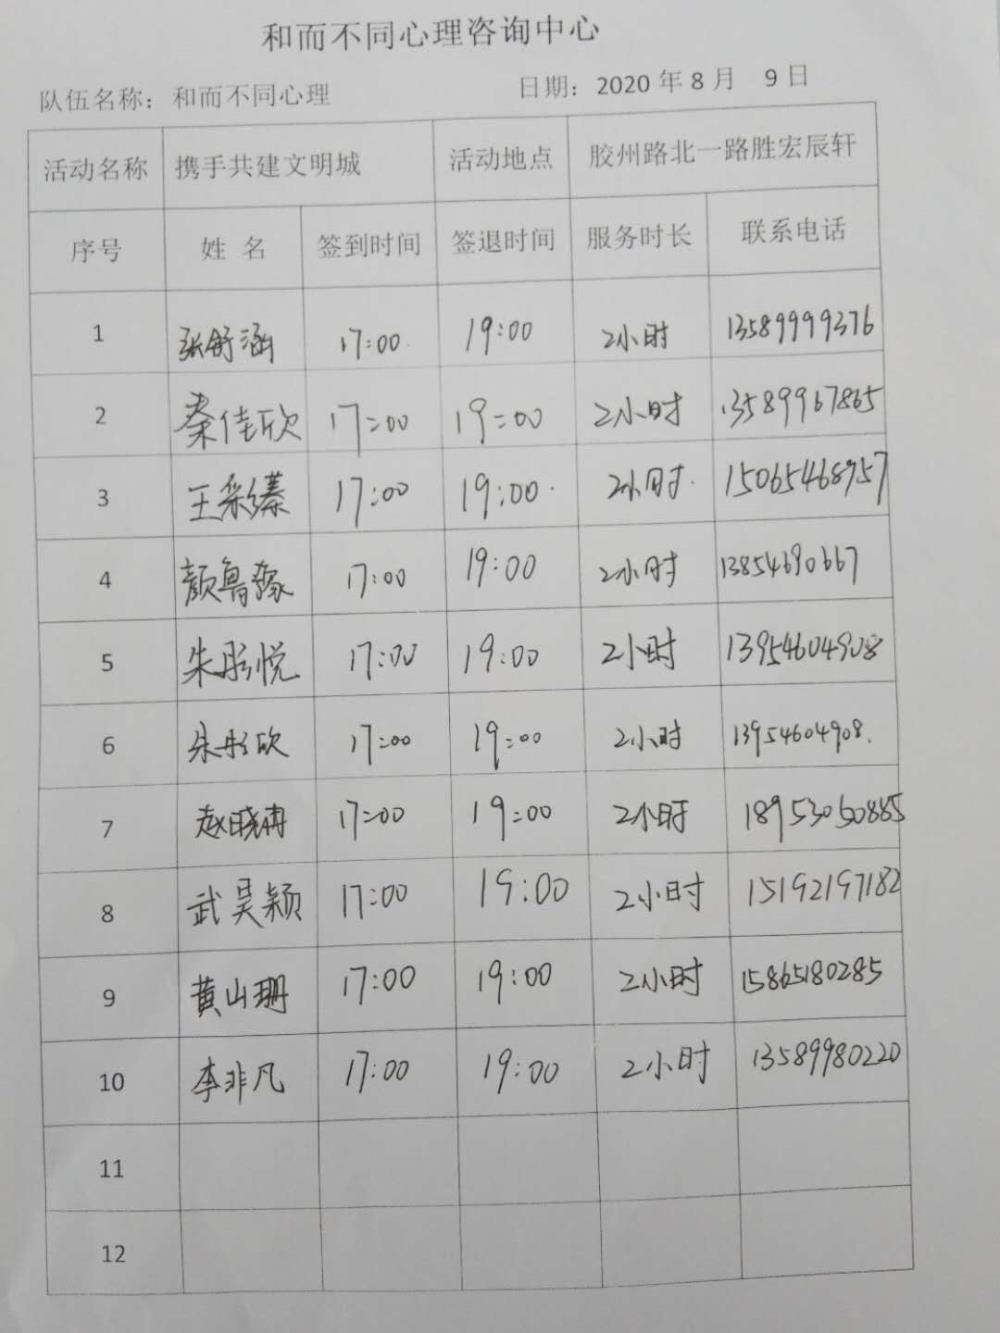 和而不同心理咨询中心
队伍名称：和而不同心理 日期：2020 年 8 月 9 日
活动名称 携手共建文明城 活动地点 胶州路北一路胜宏辰轩
序号 姓 名 签到时间 签退时间 服务时长 联系电话
1 张舒涵 17:00 19:00 2小时 13589999376
2 秦佳欣 17:00 19:00 2小时 13589967865
3 王彩蓁 17:00 19:00 2小时 15065468957
4 颜鲁豫 17:00 19:00 2小时 13854690667
5 朱彤悦 17:00 19:00 2小时 13954604908
6 朱彤欣 17:00 19:00 2小时 13954604908.
7 赵晓冉 17:00 19:00 2小时 18953050885
8 武昊颖 17:00 19:00 2小时 15192197182
9 黄山珊 17:00 19:00 2小时 15865180285
10 李非凡 17:00 19:00 2小时 13589980220
11
12